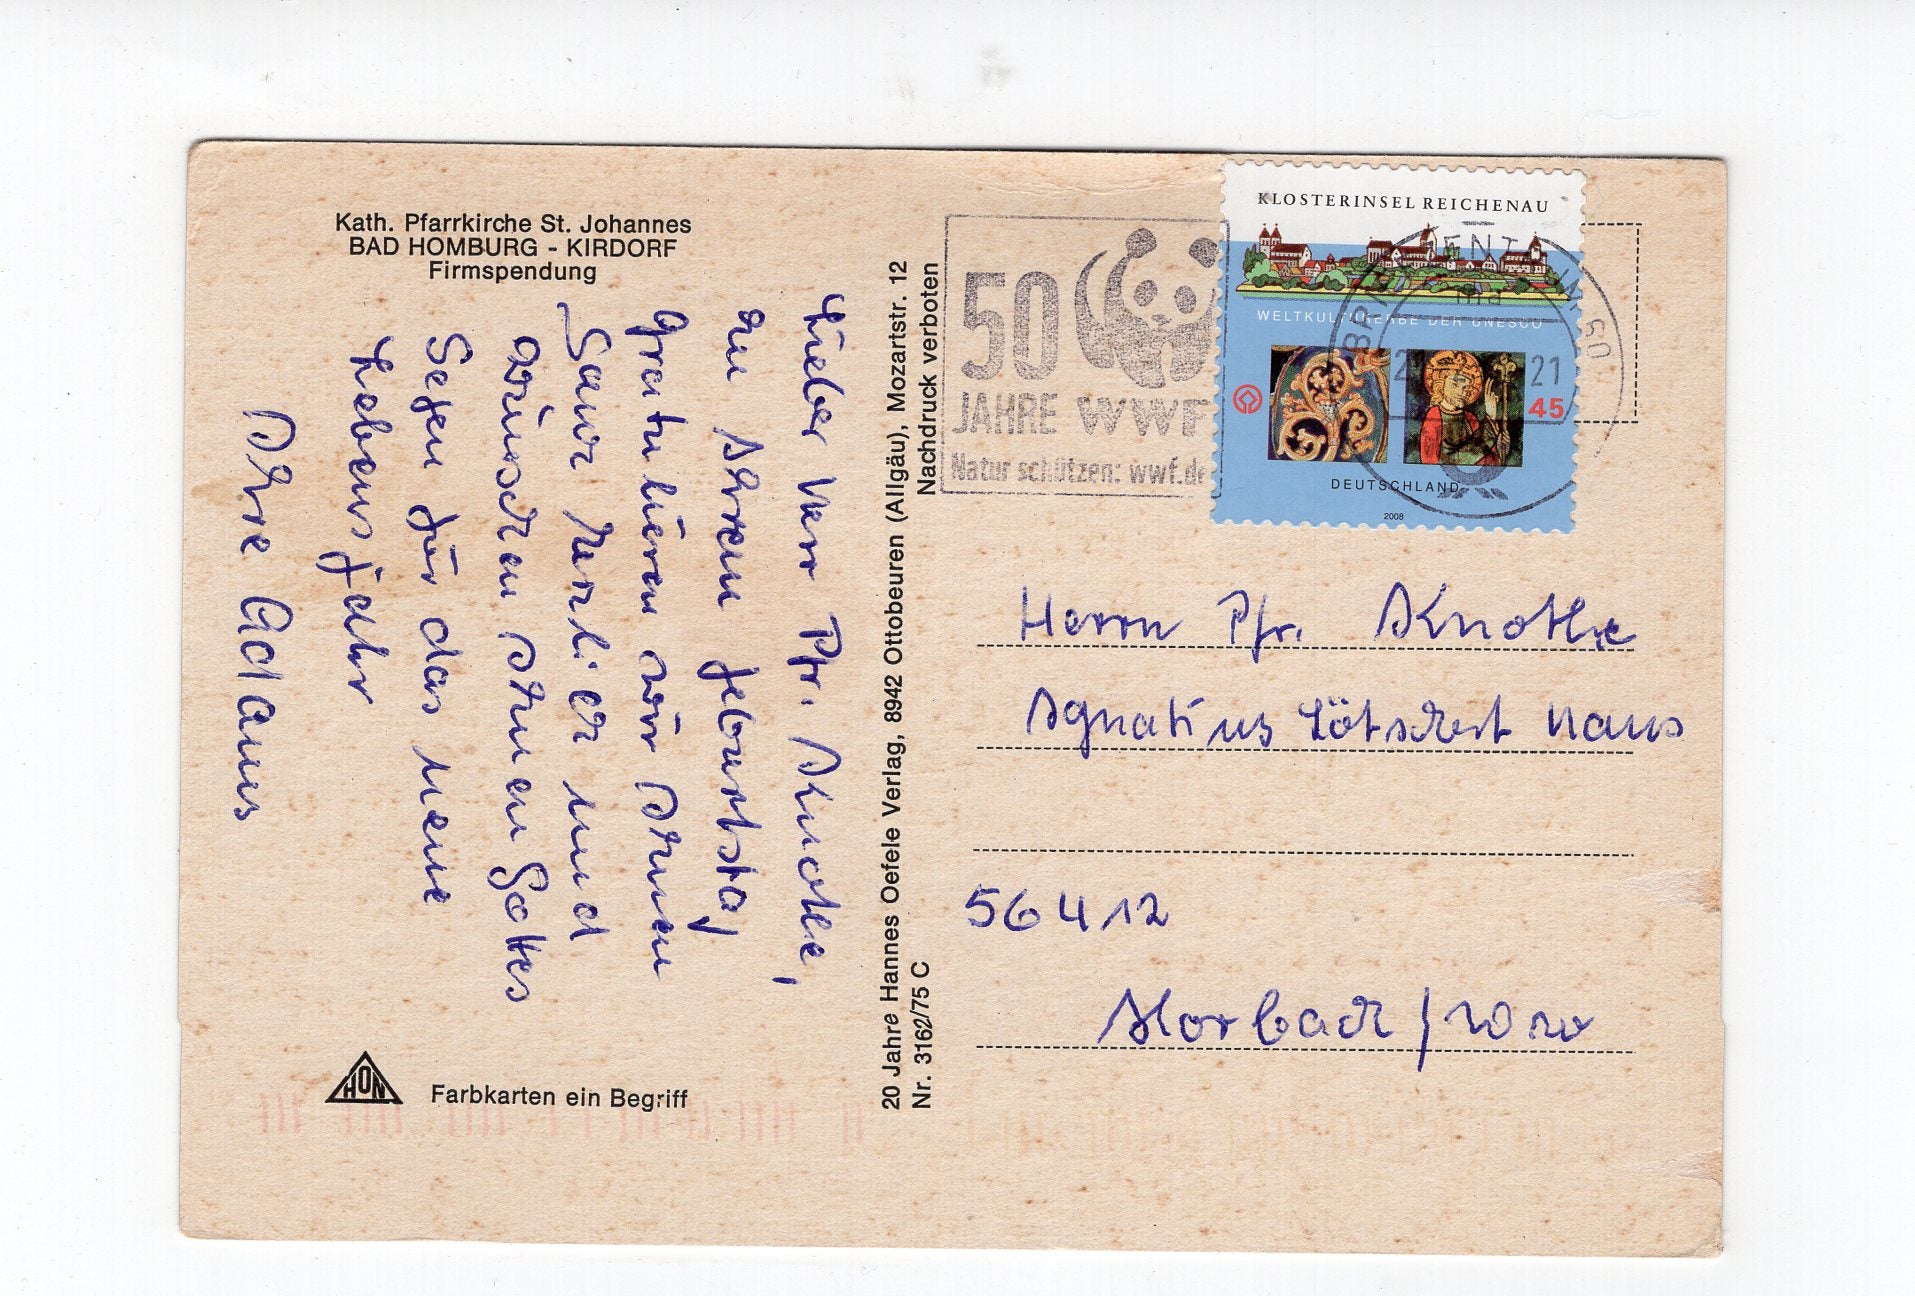 Kath. Pfarrkirche St. Johannes
BAD HOMBURG - KIRDORF
Firmspendung
Lieber Herr Pfr. Knothe,
zu Ihrem Geburtstag
gratulieren wir Ihnen
ganz herzlich und
wünschen Ihnen Gottes
Segen für das neue
Lebensjahr
Ihre Adams
HON
Farbkarten ein Begriff
20 Jahre Hannes Oefele Verlag, 8942 Ottobeuren (Allgäu), Mozartstr. 12
Nr. 3162/75 C
Nachdruck verboten
50
JAHRE WWF
Natur schützen: wwf.de
KLOSTERINSEL REICHENAU
WELTKULTURERBE DER UNESCO
45
DEUTSCHLAND
2008
BRIEFZENTRUM 60
21
Herrn Pfr. Knothe
Ignatius Lötschert Haus
56412
Horbach / WW